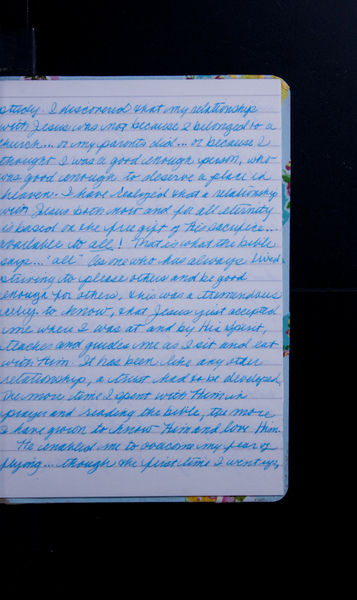 study. I discovered that my relationship
with Jesus was not because I belonged to a
church... or my parents did... or because I
thought I was a good enough person, who
was good enough to deserve a place in
heaven. I have realized that a relationship
with Jesus both now and for all eternity
is based on the free gift of His sacrifice...
available to all! That is what the bible
says... "all" As me who has always lived
striving to please others and be good
enough for others, this was a tremendous
relief to know, that Jesus just accepted
me where I was at and by His Spirit,
teaches and guides me as I sit and eat
with Him. It has been like any other
relationship, a trust had to be developed,
the more time I spent with Him in
prayer and reading the bible, the more
I have grown to know Him and love Him.
He enabled me to overcome my fear of
flying... though the first time I went up,